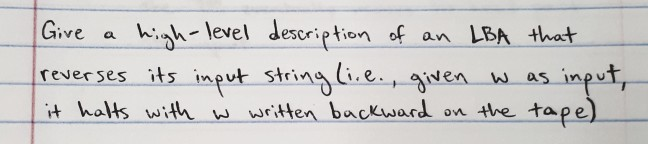 Give a high-level description of an LBA that
reverses its input string (i.e., given w as input,
it halts with w written backward on the tape)